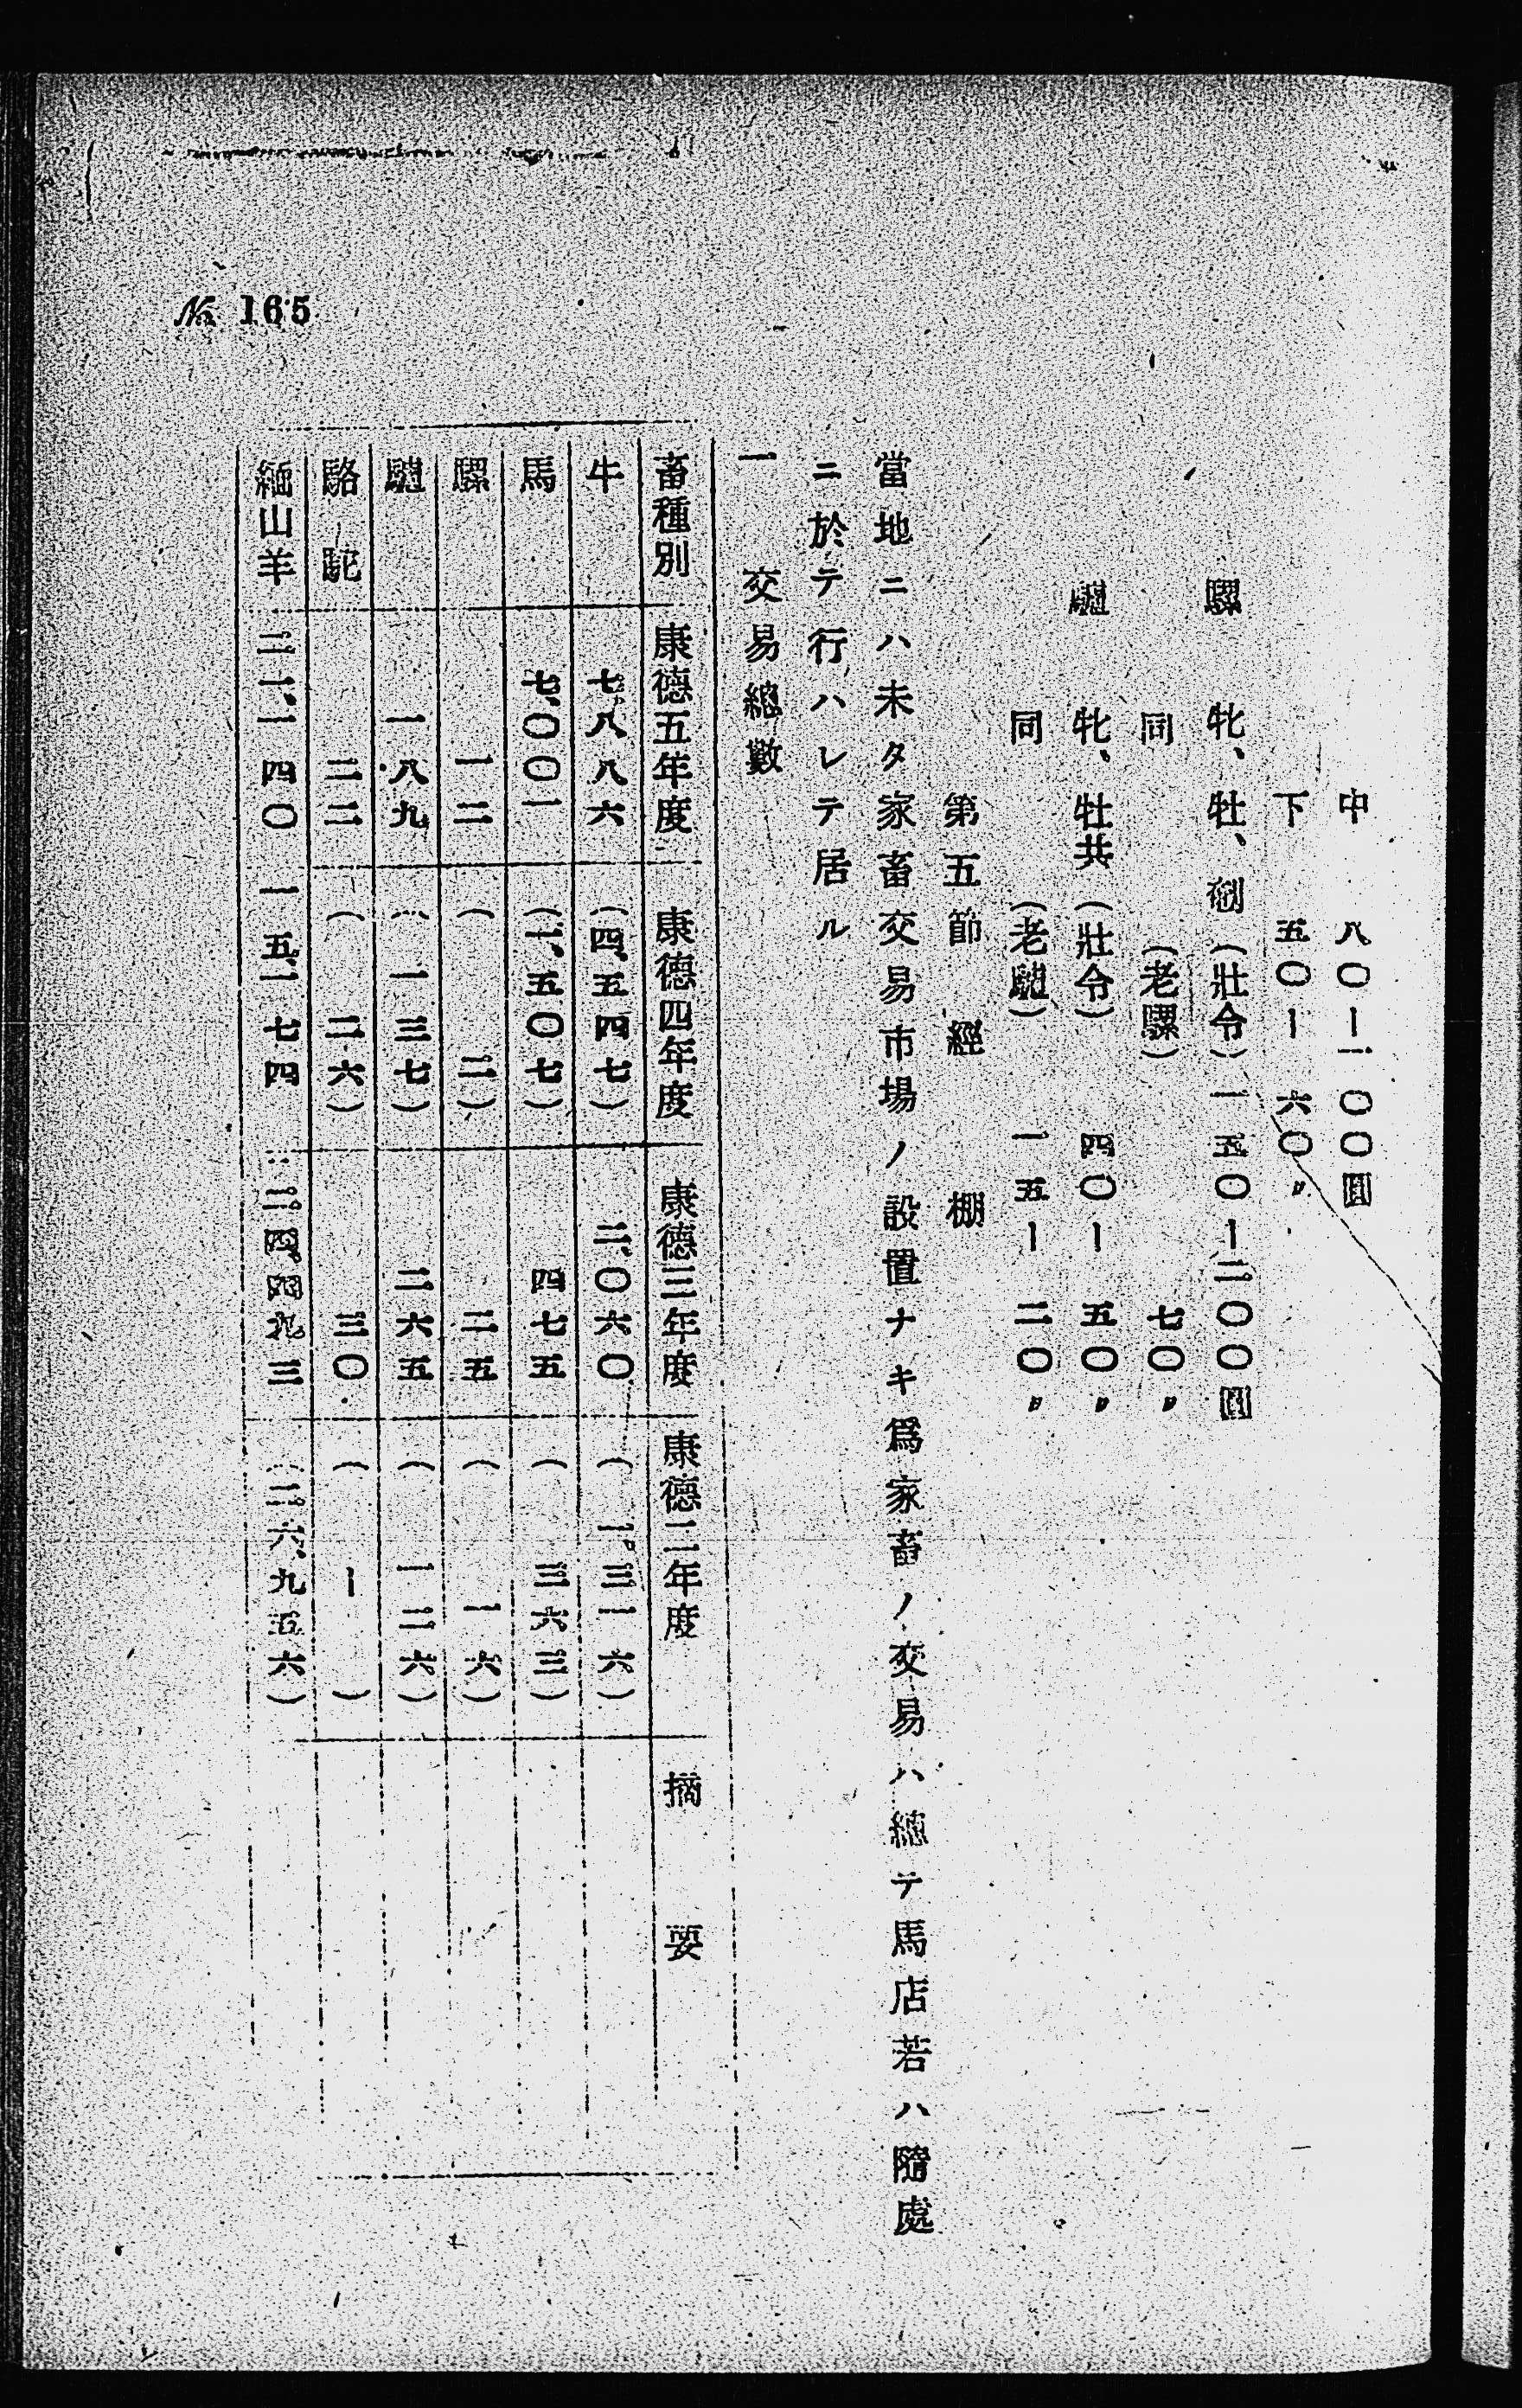 中 八〇ー一〇〇圓
下 五〇ー 六〇〃
騾 牝、牡、劁(壯令)一五〇ー二〇〇圓
同 (老騾) 七〇〃
驢 牝、牡共(壯令) 四〇ー 五〇〃
同 (老驢) 一五ー 二〇〃
第五節 經 棚
當地ニハ未タ家畜交易市場ノ設置ナキ爲家畜ノ交易ハ總テ馬店若ハ隨處
ニ於テ行ハレテ居ル
一 交易總數
畜種別 康德五年度 康德四年度 康德三年度 康德二年度 摘要
牛 七八八六 (四、五四七) 二、〇六〇 (一、三一六)
馬 七、〇〇一 (一、五〇七) 四七五 (三六三)
騾 一二 ( 二) 二五 ( 一六)
驢 一八九 ( 一三七) 二六五 ( 一二六)
駱駝 二二 ( 二六) 三〇 ( ー )
緬山羊 二一、一四〇 一五、一七四 二四、四九三 (二六、九五六)
№ 165